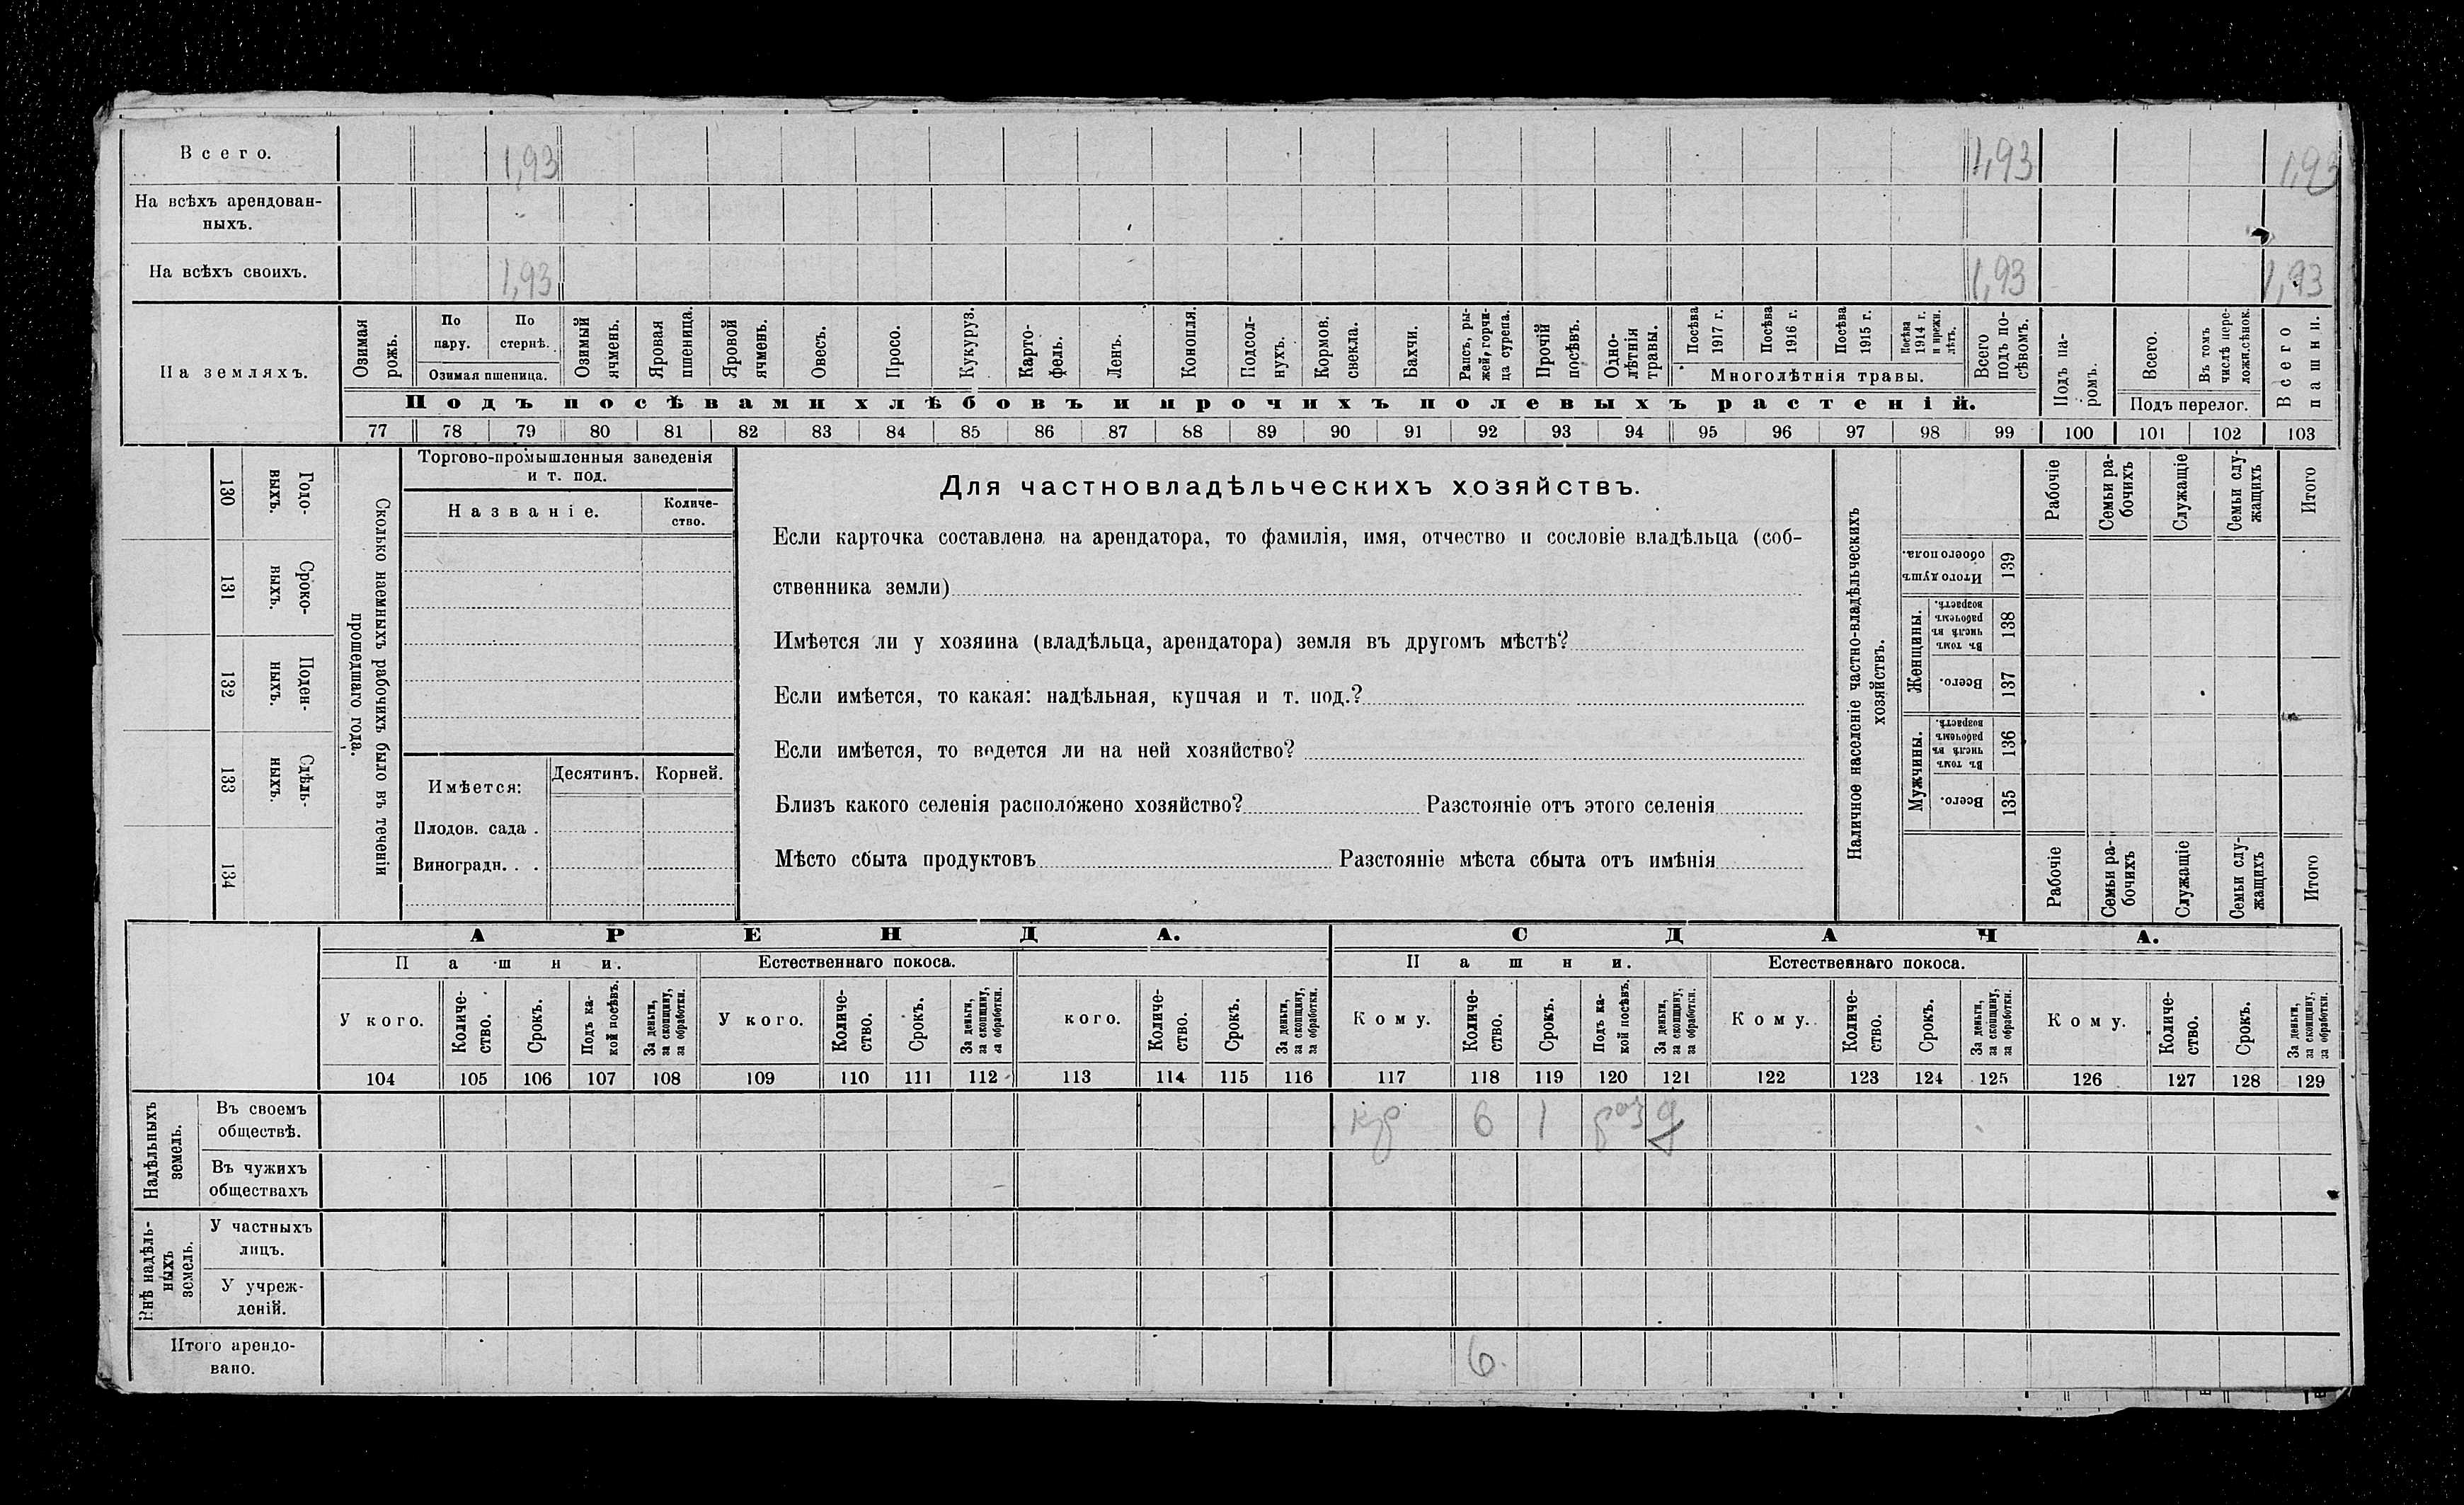 Всего. 1,93 1,93 1,93
На всѣхъ арендован-
ныхъ.
На всѣхъ своихъ. 1,93 1,93 1,93
На земляхъ.
Озимая рожь.
По пару.
По стернѣ.
Озимая пшеница.
Озимый ячмень.
Яровая пшеница.
Яровой ячмень.
Овесъ.
Просо.
Кукуруз.
Карто-
фель.
Ленъ.
Конопля.
Подсол-
нухъ.
Кормов. свекла.
Бахчи.
Рапсъ, ры-
жей, горчи-
ца сурепа.
Прочій посѣвъ.
Одно-
лѣтнія травы.
Посѣва 1917 г.
Посѣва 1916 г.
Посѣва 1915 г.
Посѣва 1914 г. и прежн. лѣтъ.
Многолѣтнія травы.
Всего подъ по-
сѣвомъ.
Подъ па-
ромъ.
Всего.
Въ томъ числѣ пере-
ложн.сѣнок.
Подъ перелог.
Всего пашни.
Подъ посѣвами хлѣбовъ и прочихъ полевыхъ растеній.
77 78 79 80 81 82 83 84 85 86 87 88 89 90 91 92 93 94 95 96 97 98 99 100 101 102 103
Сколько наемныхъ рабочихъ было въ теченіи
прошедшаго года.
Годо-
выхъ.
130
Сроко-
выхъ.
131
Поден-
ныхъ.
132
Сдѣль-
ныхъ.
133
134
Торгово-промышленныя заведенія
и т. под.
Названіе.
Количе-
ство.
Имѣется:
Десятинъ.
Корней.
Плодов. сада .
Виноградн. . .
Для частновладѣльческихъ хозяйствъ.
Если карточка составлена на арендатора, то фамилія, имя, отчество и сословіе владѣльца (соб-
ственника земли)
Имѣется ли у хозяина (владѣльца, арендатора) земля въ другомъ мѣстѣ?
Если имѣется, то какая: надѣльная, купчая и т. под.?
Если имѣется, то ведется ли на ней хозяйство?
Близъ какого селенія расположено хозяйство? Разстояніе отъ этого селенія
Мѣсто сбыта продуктовъ Разстояніе мѣста сбыта отъ имѣнія
Наличное населеніе частно-владѣльческихъ
хозяйствъ.
Рабочіе
Семьи ра-
бочихъ
Служащіе
Семьи слу-
жащихъ
Итого
Итого душъ
обоего пола.
139
Женщины.
Въ томъ числѣ въ рабочемъ возрастѣ.
138
Всего.
137
Мужчины.
Въ томъ числѣ въ рабочемъ возрастѣ.
136
Всего.
135
Рабочіе
Семьи ра-
бочихъ
Служащіе
Семьи слу-
жащихъ
Итого
АРЕНДА. СДАЧА.
Пашни. Естественнаго покоса. Пашни. Естественнаго покоса.
У кого.
Количе-
ство.
Срокъ.
Подъ ка-
кой посѣвъ.
За деньги,
за скопщину,
за обработки.
У кого.
Количе-
ство.
Срокъ.
За деньги,
за скопщину,
за обработки.
кого.
Количе-
ство.
Срокъ.
За деньги,
за скопщину,
за обработки.
Кому.
Количе-
ство.
Срокъ.
Подъ ка-
кой посѣвъ.
За деньги,
за скопщину,
за обработки.
Кому.
Количе-
ство.
Срокъ.
За деньги,
за скопщину,
за обработки.
Кому.
Количе-
ство.
Срокъ.
За деньги,
за скопщину,
за обработки.
104 105 106 107 108 109 110 111 112 113 114 115 116 117 118 119 120 121 122 123 124 125 126 127 128 129
Надѣльныхъ
земель.
Въ своемъ
обществѣ.
кр 6 1 раз д
Въ чужихъ
обществахъ
Внѣ надѣль-
ныхъ
земель.
У частныхъ
лицъ.
У учреж-
деній.
Итого арендо-
вано.
6